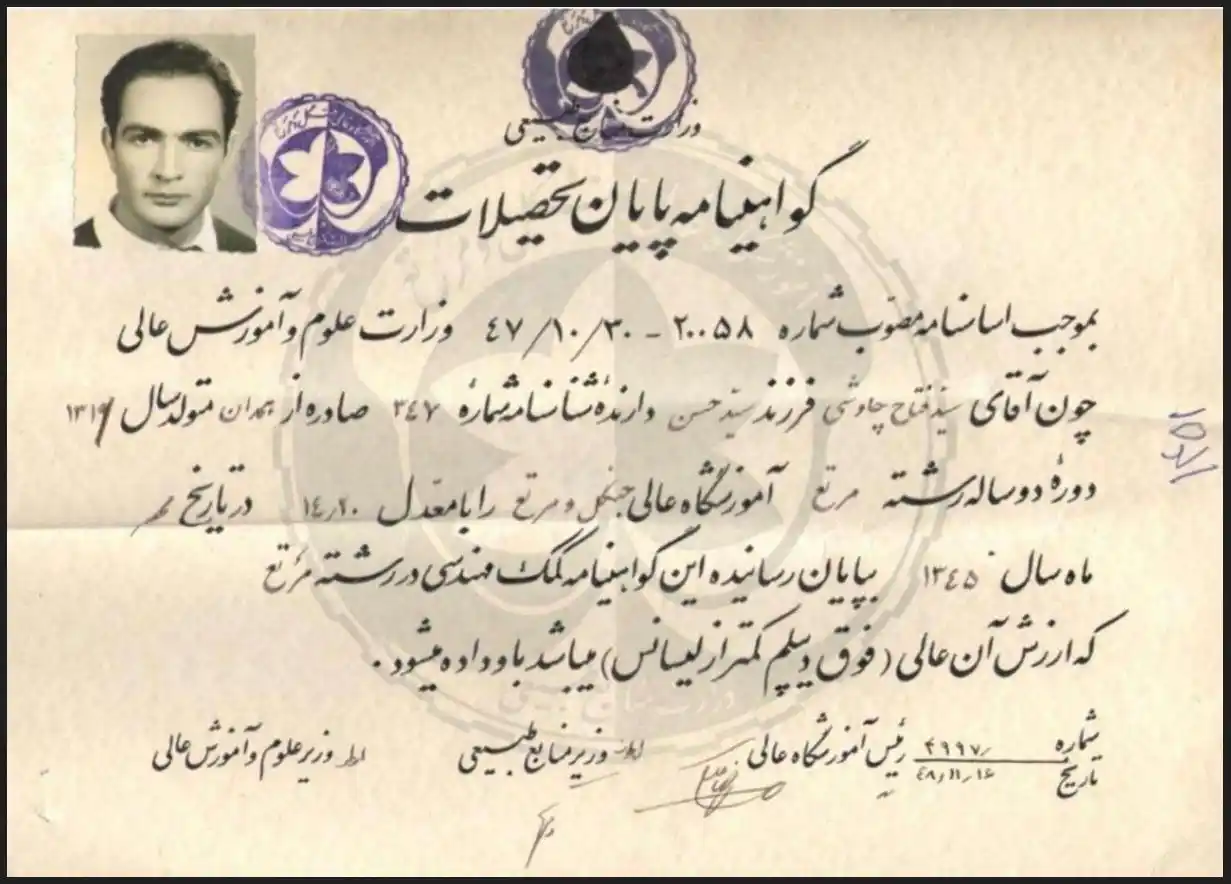 وزارت منابع طبیعی
گواهینامه پایان تحصیلات
بموجب اساسنامه مصوب شماره ۲۰۰۵۸ - ۴۷/۱۰/۳۰ وزارت علوم و آموزش عالی
چون آقای سید فتاح چاوشی فرزند سید حسن دارنده شناسنامه شمارهٔ ۳۴۷ صادره از همدان متولد سال ۱۳۱۹
دورهٔ دو ساله رشته مرتع آموزشگاه عالی جنگل و مرتع را با معدل ۱۴٫۲۰ در تاریخ
ماه سال ۱۳۴۵ بپایان رسانیده این گواهینامه کمک مهندسی در رشته مرتع
که ارزش آن عالی (فوق دیپلم کمتر از لیسانس) میباشد باو داده میشود.
شماره ۳۹۹۷ رئیس آموزشگاه عالی وزیر منابع طبیعی وزیر علوم و آموزش عالی
تاریخ ۴۸٫۱۱٫۱۶